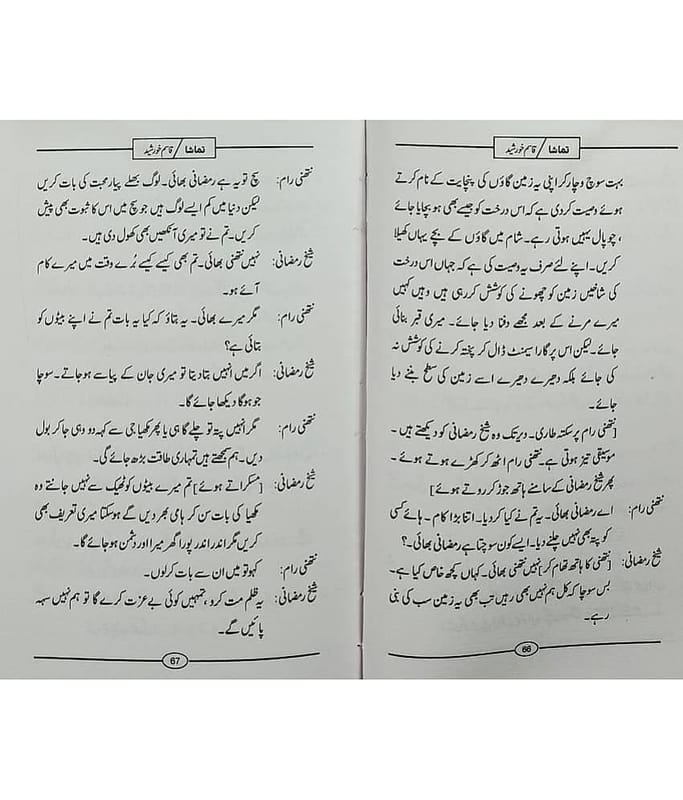 تماشا / قاسم خورشید
بہت سوچ وچار کر اپنی یہ زمین گاؤں کی پنچایت کے نام کرتے
ہوئے وصیت کردی ہے کہ اس درخت کو جیسے بھی ہو بچایا جائے
، چوپال یہیں ہوتی رہے۔ شام میں گاؤں کے بچے یہاں کھیلا
کریں۔ اپنے لئے صرف یہ وصیت کی ہے کہ جہاں اس درخت
کی شاخیں زمین کو چھونے کی کوشش کررہی ہیں وہیں کہیں
میرے مرنے کے بعد مجھے دفنا دیا جائے۔ میری قبر بنائی
جائے۔ لیکن اس پر گارا سیمنٹ ڈال کر پختہ کرنے کی کوشش نہ
کی جائے بلکہ دھیرے دھیرے اسے زمین کی سطح بننے دیا
جائے۔
[نتھنی رام پر سکتہ طاری۔ دیر تک وہ شیخ رمضانی کو دیکھتے ہیں۔
موسیقی تیز ہوتی ہے۔ نتھنی رام اٹھ کر کھڑے ہوتے ہوئے۔
پھر شیخ رمضانی کے سامنے ہاتھ جوڑ کر روتے ہوئے]
نتھنی رام: اے رمضانی بھائی۔ یہ تم نے کیا کردیا۔ اتنا بڑا کام۔ ہائے کسی
کو پتہ بھی نہیں چلنے دیا۔ ایسے کون سوچتا ہے رمضانی بھائی۔؟
شیخ رمضانی: [نتھنی کا ہاتھ تھام کر] نہیں نتھنی بھائی۔ کہاں کچھ خاص کیا ہے۔
بس سوچا کہ کل ہم نہیں بھی رہیں تب بھی یہ زمین سب کی بنی
رہے۔
66
تماشا / قاسم خورشید
نتھنی رام: سچ تو یہ ہے رمضانی بھائی۔ لوگ بھلے پیار محبت کی بات کریں
لیکن دنیا میں کم ایسے لوگ ہیں جو سچ میں اس کا ثبوت بھی پیش
کریں۔ تم نے تو میری آنکھیں بھی کھول دی ہیں۔
شیخ رمضانی: نہیں نتھنی بھائی۔ تم بھی کیسے کیسے بُرے وقت میں میرے کام
آئے ہو۔
نتھنی رام: مگر میرے بھائی۔ یہ بتاؤ کہ کیا یہ بات تم نے اپنے بیٹوں کو
بتائی ہے؟
شیخ رمضانی: اگر میں انہیں بتا دیتا تو میری جان کے پیاسے ہوجاتے۔ سوچا
جو ہوگا دیکھا جائے گا۔
نتھنی رام: مگر انہیں پتہ تو چلے گا ہی یا پھر مکھیا جی سے کہہ دو وہی جا کر بول
دیں۔ ہم سمجھتے ہیں تمہاری طاقت بڑھ جائے گی۔
شیخ رمضانی: [مسکراتے ہوئے] تم میرے بیٹوں کو ٹھیک سے نہیں جانتے وہ
مکھیا کی بات سن کر ہامی بھر دیں گے ہوسکتا میری تعریف بھی
کریں مگر اندر اندر پورا گھر میرا اور دشمن ہوجائے گا۔
نتھنی رام: کہو تو میں ان سے بات کرلوں۔
شیخ رمضانی: یہ ظلم مت کرو، تمہیں کوئی بے عزت کرے گا تو ہم نہیں سہہ
پائیں گے۔
67